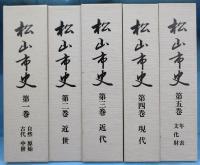 松山市史
第一巻
自然 原始
古代 中世
松山市史
第二巻
近世
松山市史
第三巻
近代
松山市史
第四巻
現代
松山市史
第五巻
年表
文化財